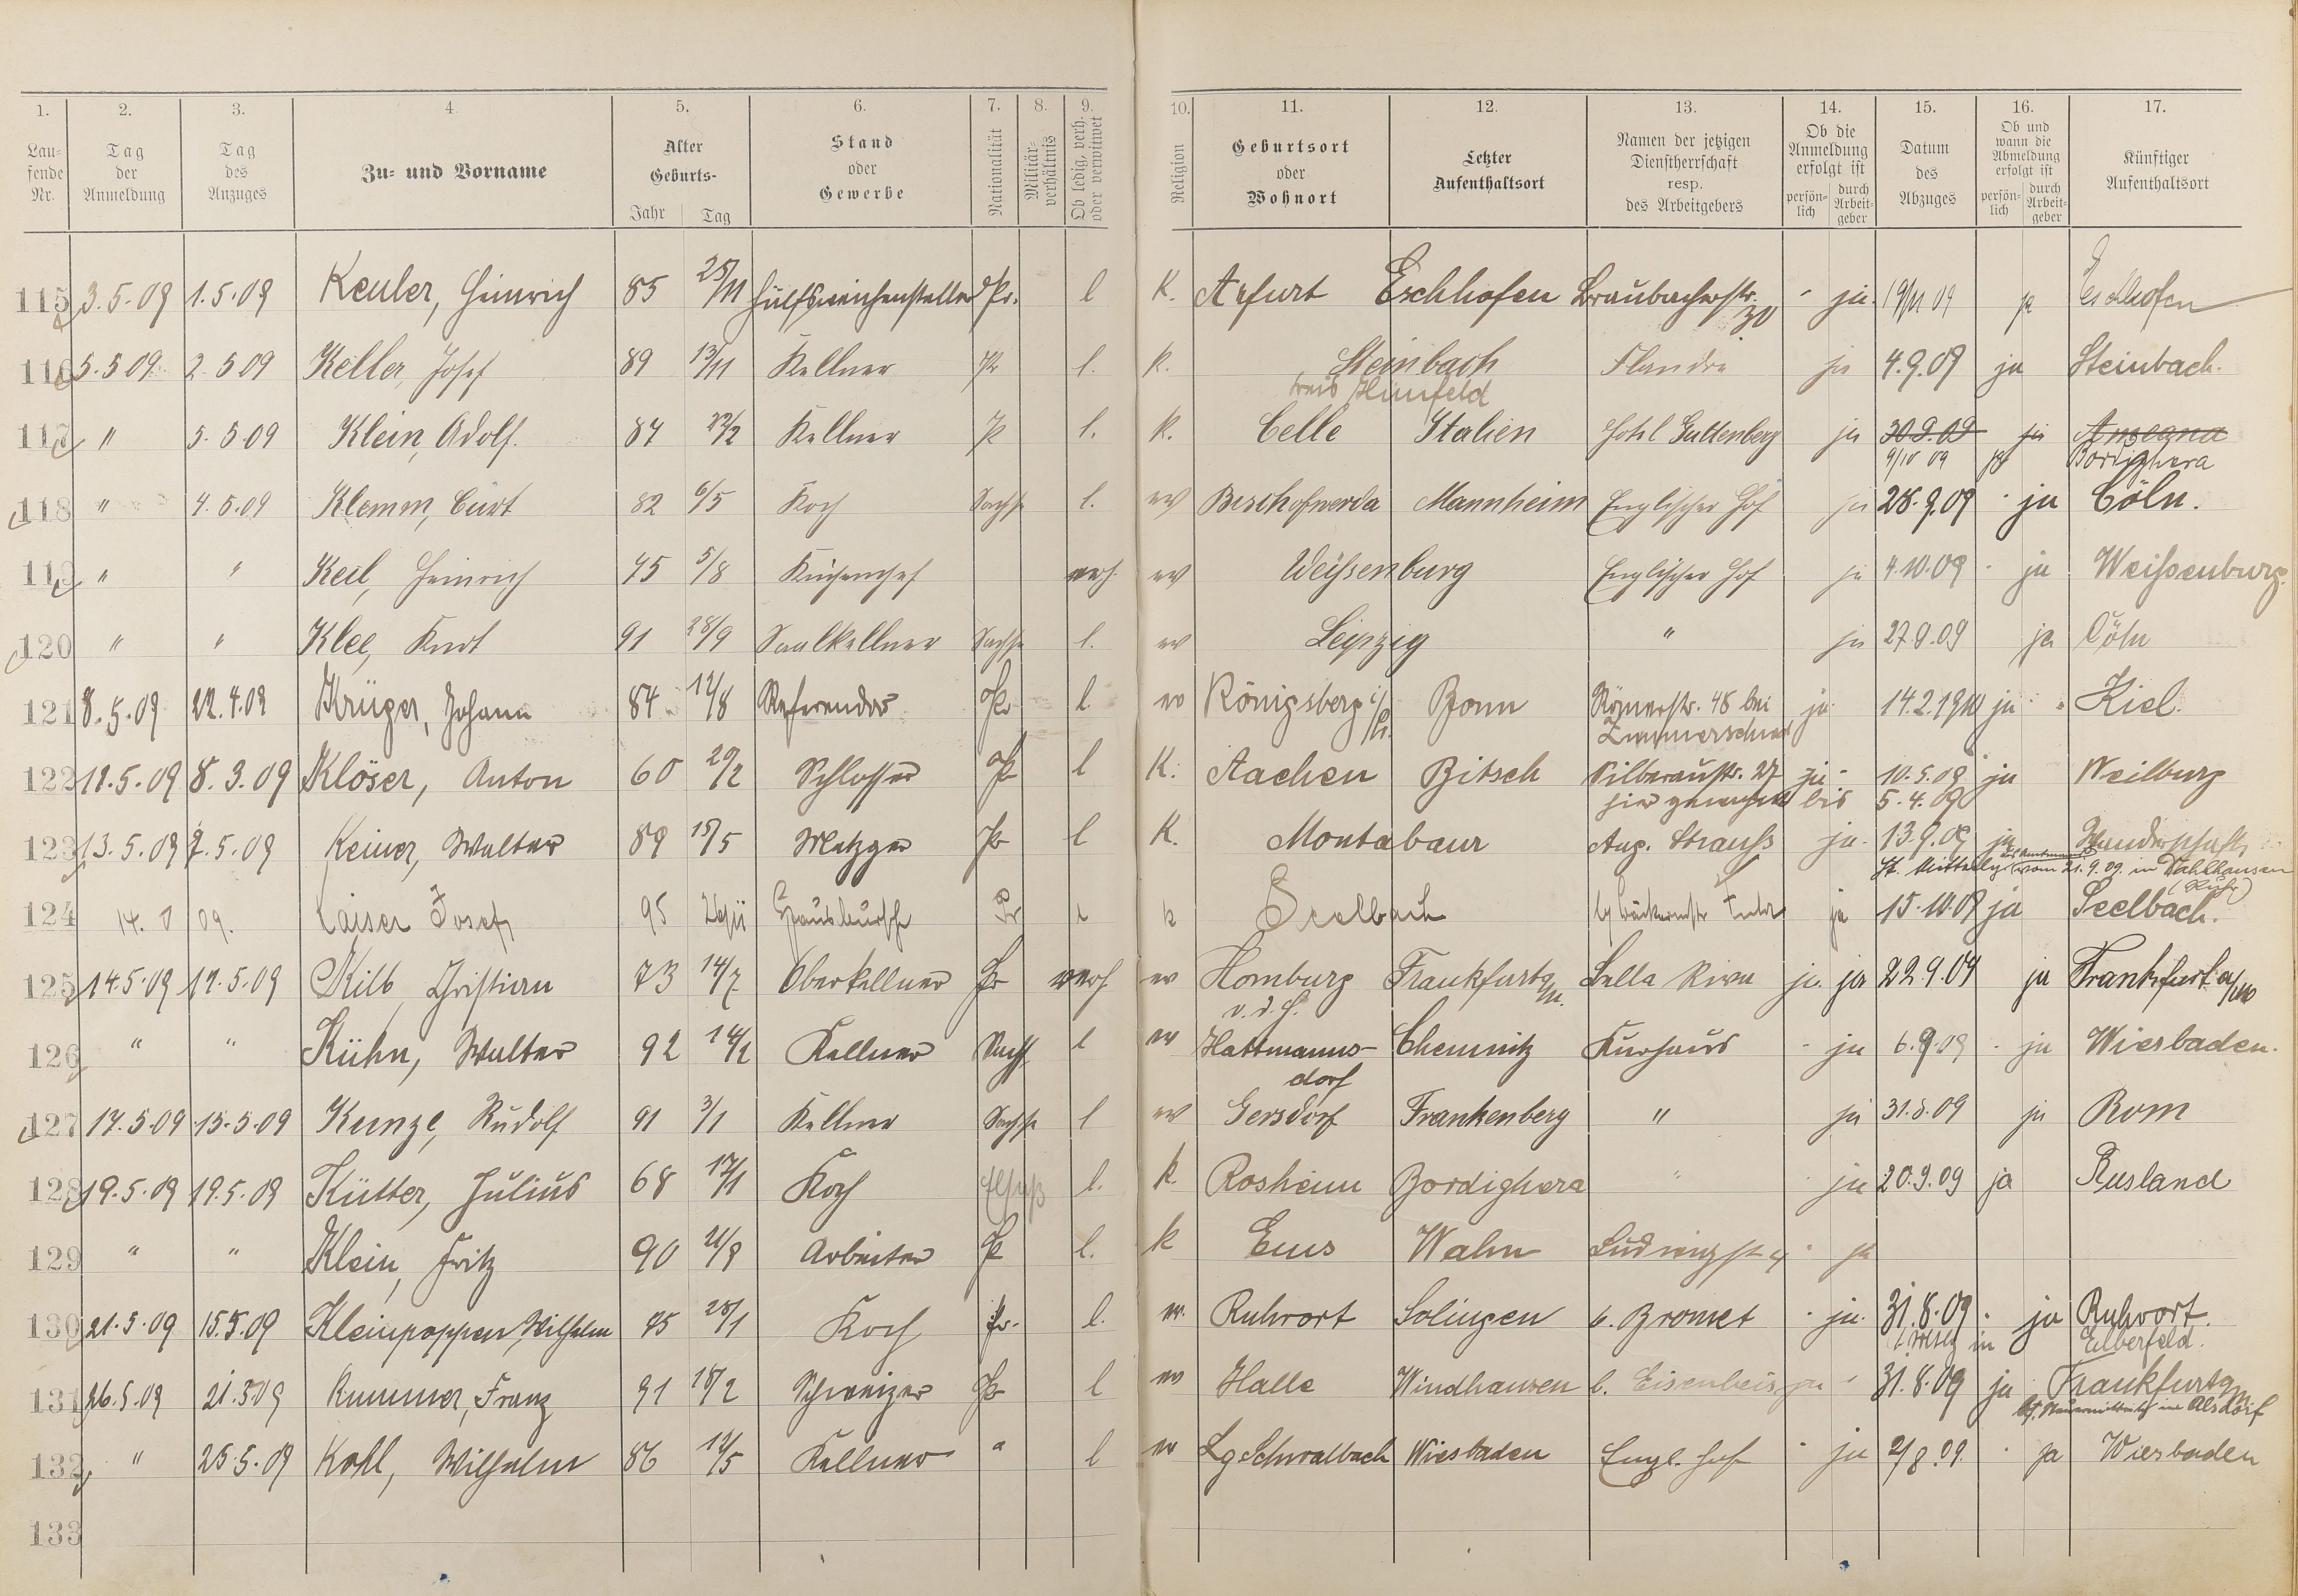 1. 2. 3. 4. 5. 6. 7. 8. 9. 10. 11. 12. 13. 14. 15. 16. 17.
Laufende Nr. Tag der Anmeldung Tag des Anzuges Zu- und Vorname Alter Geburts- Jahr Tag Stand oder Gewerbe Nationalität Militärverhältnis Ob ledig, verh. oder verwitwet Religion Geburtsort oder Wohnort Letzter Aufenthaltsort Namen der jetzigen Dienstherrschaft resp. des Arbeitgebers Ob die Anmeldung erfolgt ist persönlich durch Arbeitgeber Datum des Abzuges Ob und wann die Abmeldung erfolgt ist persönlich durch Arbeitgeber Künftiger Aufenthaltsort
115 3.5.09 1.5.09 Keuler, Heinrich 85 25/11 Hülfsweichensteller Pr. l K. Arfurt Eschhofen Braubacherstr. 30 ja 19/11 09 ja Eschhofen
116 5.5.09 2.5.09 Keller, Josef 89 13/11 Kellner Pr l. k. Steinbach Flandre ja 4.9.09 ja Steinbach.
Kreis Hünfeld
117 " 5.5.09 Klein, Adolf. 87 22/2 Kellner Pr l. k. Celle Italien Hotel Guttenberg ja 30.9.09 ja
9/10 09 ja Bordighera
118 " 4.5.09 Klemm, Curt 82 6/5 Koch Sachse l. ev Bischofwerda Mannheim Englischer Hof ja 28.9.09 ja Cöln.
119 " " Keil, Heinrich 75 5/8 Küchenchef verh. ev Weißenburg Englischer Hof ja 4.10.09 ja Weißenburg.
120 " " Klee, Kurt 91 28/9 Saalkellner Sachse l. ev Leipzig " ja 27.9.09 ja Cöln
121 8.5.09 22.4.09 Krüger, Johann 84 12/8 Referendar Pr l ev Königsberg i/Pr. Bonn Römerstr. 48 bei ja 14.2.1910 ja Kiel.
122 12.5.09 8.3.09 Klöser, Anton 60 29/2 Schlosser Pr l K. Aachen Bitsch Silberaustr. 27 ja 10.5.09 ja Weilburg
hier gewesen bis 5.4.09
123 13.5.09 7.5.09 Keiner, Walter 89 15/5 Metzger Pr l K. Montabaur Aug. Strauß ja 13.9.09 ja Wanderschaft,
lt. Mitteilg. vom 21.9.09 in Dahlhausen (Ruhr)
124 14. 5 09. Kaiser Josef 95 Hausbursche Pr l k Seelbach ja 15.10.09 ja Seelbach.
125 14.5.09 12.5.09 Kilb, Christian 73 14/7 Oberkellner Pr verh ev Homburg v.d.H. Frankfurt a/m. Bella Riva ja ja 22.9.09 ja Frankfurt a/M
126 " " Kühn, Walter 92 14/2 Kellner Sachse l ev Hattmannsdorf Chemnitz Kurhaus ja 6.9.09 ja Wiesbaden.
127 17.5.09 15.5.09 Kunze, Rudolf 91 3/1 Kellner Sachse l ev Gersdorf Frankenberg " ja 31.8.09 ja Rom
128 19.5.09 19.5.09 Kütter, Julius 68 17/1 Koch Elsaß l. k. Rosheim Bordighera " ja 20.9.09 ja Rusland
129 " " Klein, Fritz 90 21/8 Arbeiter Pr l. k Ems Wahn Ludwigstr. ja
130 21.5.09 15.5.09 Kleinpoppen, Wilhelm 75 28/1 Koch Pr. l. ev. Ruhrort Solingen b. Bromet ja 31.8.09 ja Ruhrort.
in Elberfeld.
131 26.5.09 21.5.09 Kummer, Franz 91 18/2 Schweizer Pr l ev Halle Windhausen b. Eisenbeis ja 31.8.09 ja Frankfurt a/m
in Alsdorf
132 " 25.5.09 Kohl, Wilhelm 86 12/5 Kellner " l ev Lg Schwalbach Wiesbaden Engl. Hof ja 2/8.09. ja Wiesbaden
133